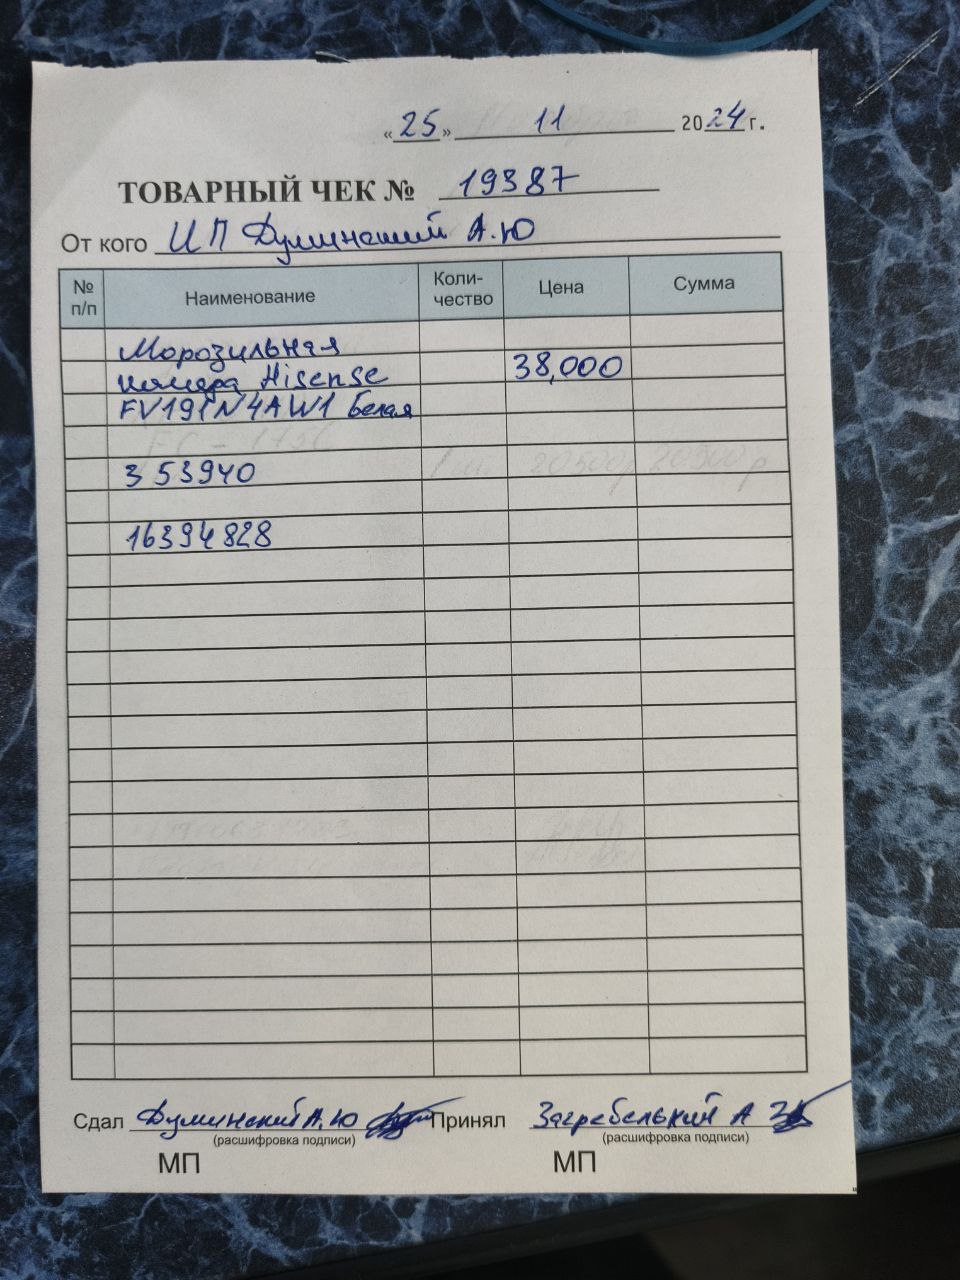 «25» 11 2024 г.
ТОВАРНЫЙ ЧЕК № 19387
От кого ИП Думинский А.Ю
№ п/п Наименование Коли-чество Цена Сумма
Морозильная
камера Hisense 38,000
FV191N4AW1 белая
353940
16394828
Сдал Думинский А.Ю Принял Загребельный А
(расшифровка подписи) (расшифровка подписи)
МП МП